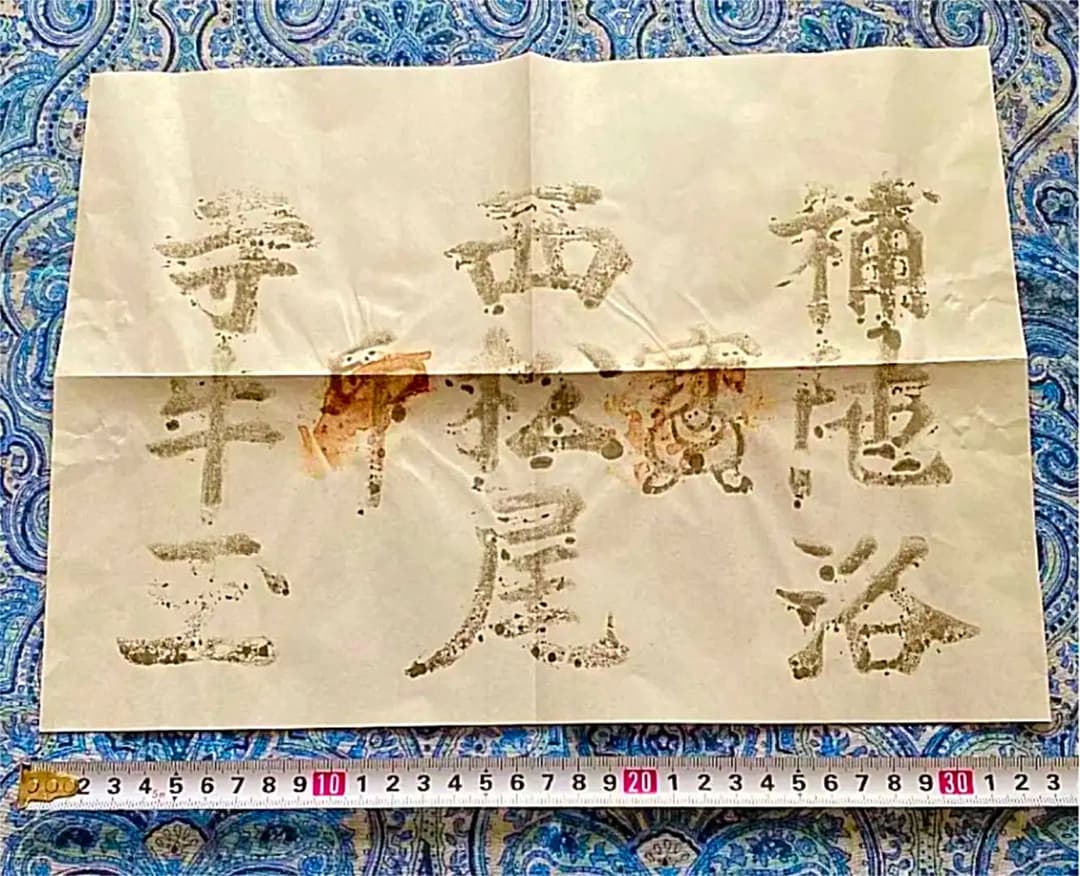 補陁洛
寳
西松尾
印
寺牛玉
2 3 4 5 6 7 8 9 10 1 2 3 4 5 6 7 8 9 20 1 2 3 4 5 6 7 8 9 30 1 2 3